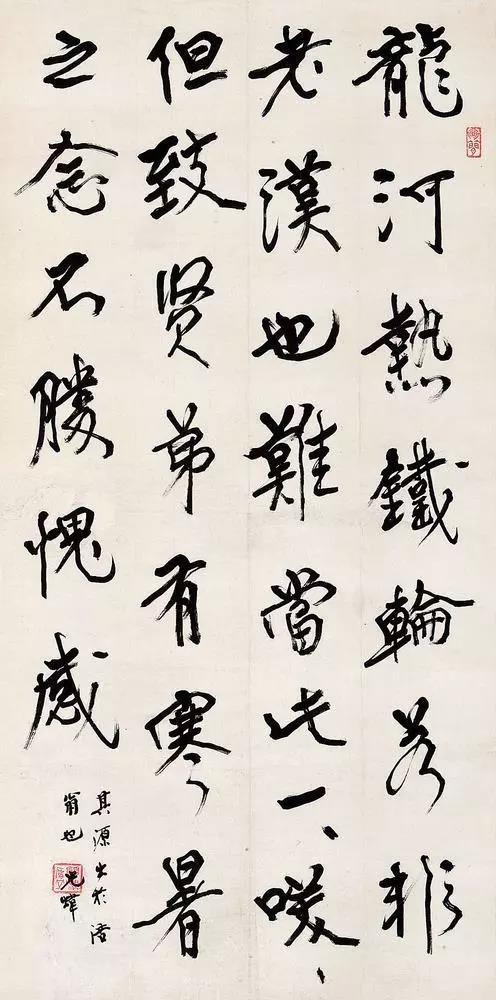 龍河熱鐵輪若非
老漢也難當此一、咲、
但致贤弟有寒暑
之念不勝愧感
其源出於涪
翁也 光煒